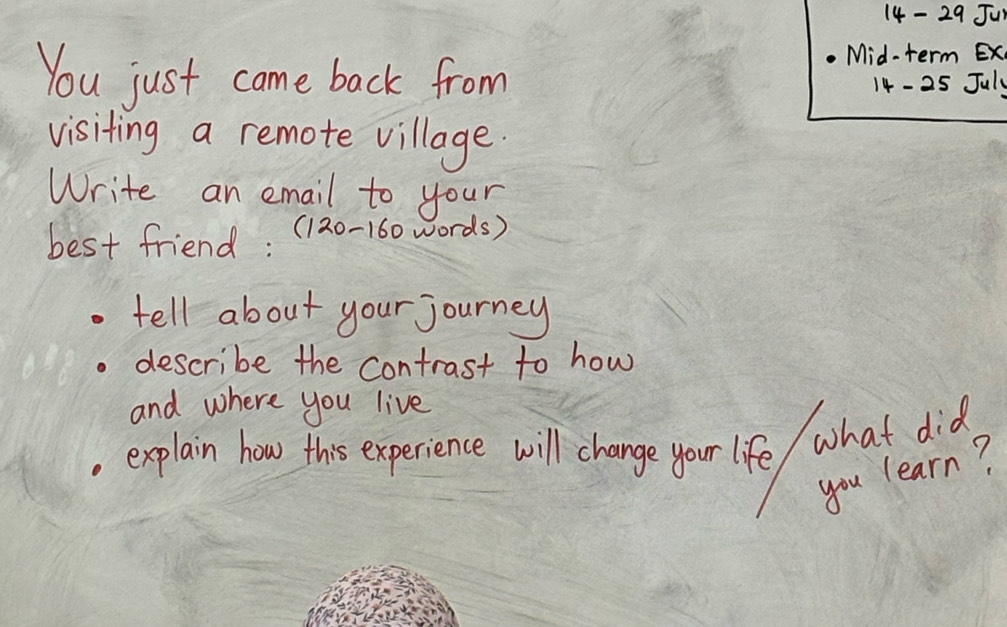 You just came back from
visiting a remote village.
Write an email to your
best friend : (120-160 words)
• tell about your journey
• describe the contrast to how
and where you live
• explain how this experience will change your life / what did
you learn?
14 - 29
• Mid-term
14 - 25 July